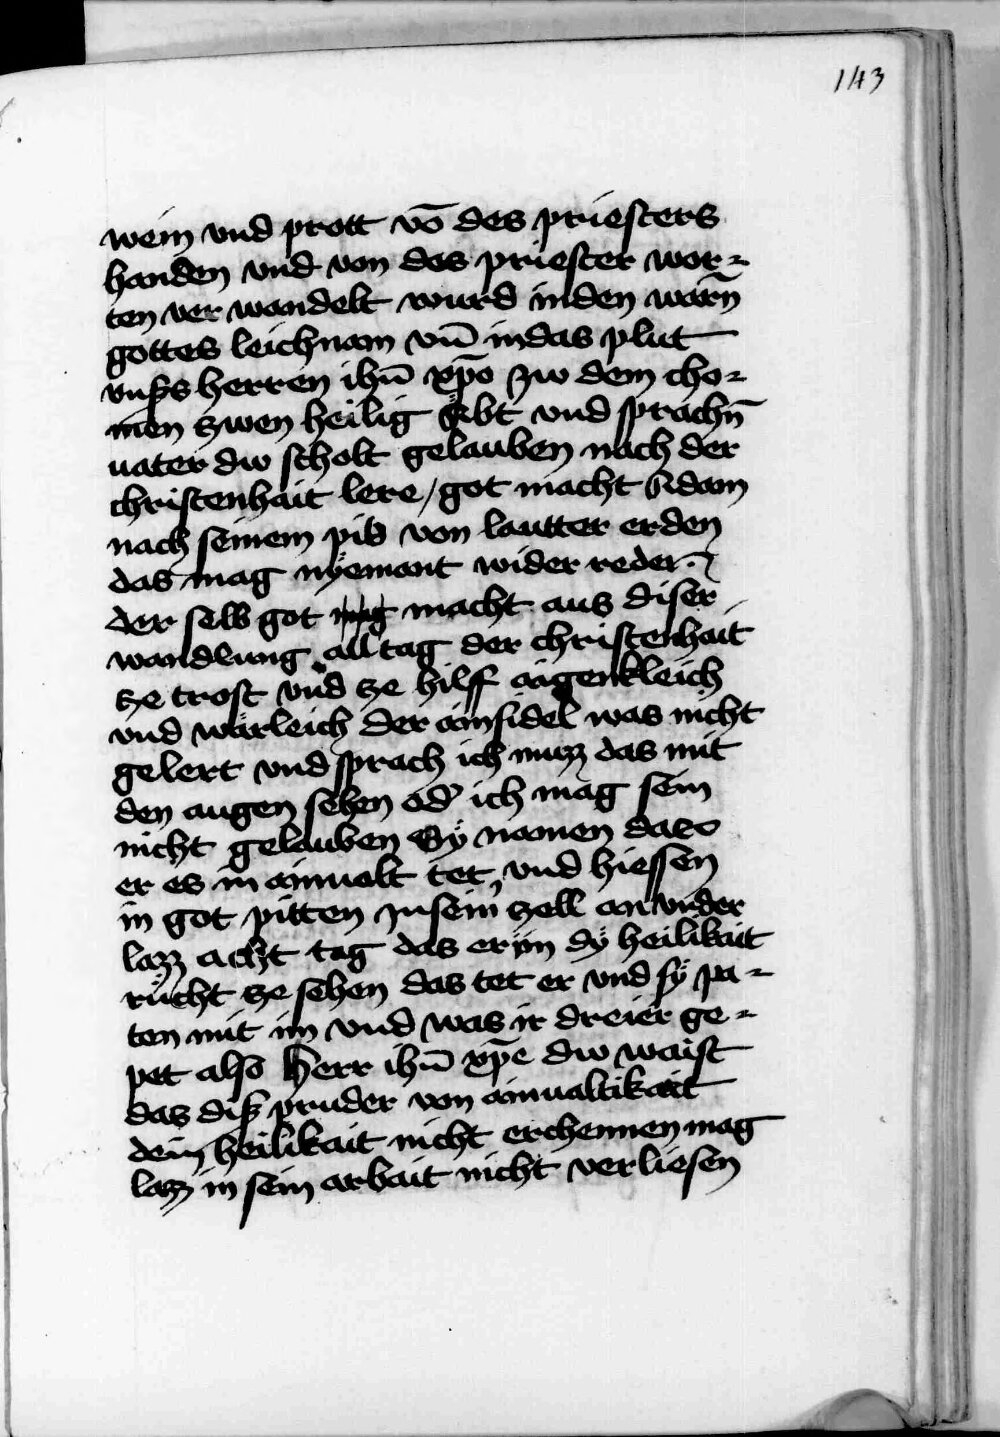 143
wein vnd prott võ des priesters
handen vnd von des priester wor-
ten ver wandelt wurd inden warñ
gottes leichnam vñ indas plut
vnsers herren ihũ xp̃o zw dem cho-
men zwen heilig Äbt vnd sprachñ
uater dw scholt gelauben nach der
christenhait lere / got macht Adam
nach seinem pild von lautter erden
das mag nÿemant wider reden
der selb got mag macht aus diser
wandlung all tag der christenhait
ze trost vnd ze hilff aigenkleich
vnd wärleich der ainsidel was nicht
gelert vnd sprach ich muzz das mit
den augen sehen od' ich mag sein
nicht gelauben Sÿ namen das
er es in ainualt tet, vnd hiessen
in got pitten in sein zell an vnder
lazz acht tag das er im dÿ heilikait
rücht ze sehen das tet er vnd sÿ pa-
ten mit im vnd was ir dreier ge-
pet also Herr ihũ xp̃e dw waist
das diser pruder von ainualtikait
dein heilikait nicht erchennen mag
lazz in sein arbait nicht verliesen